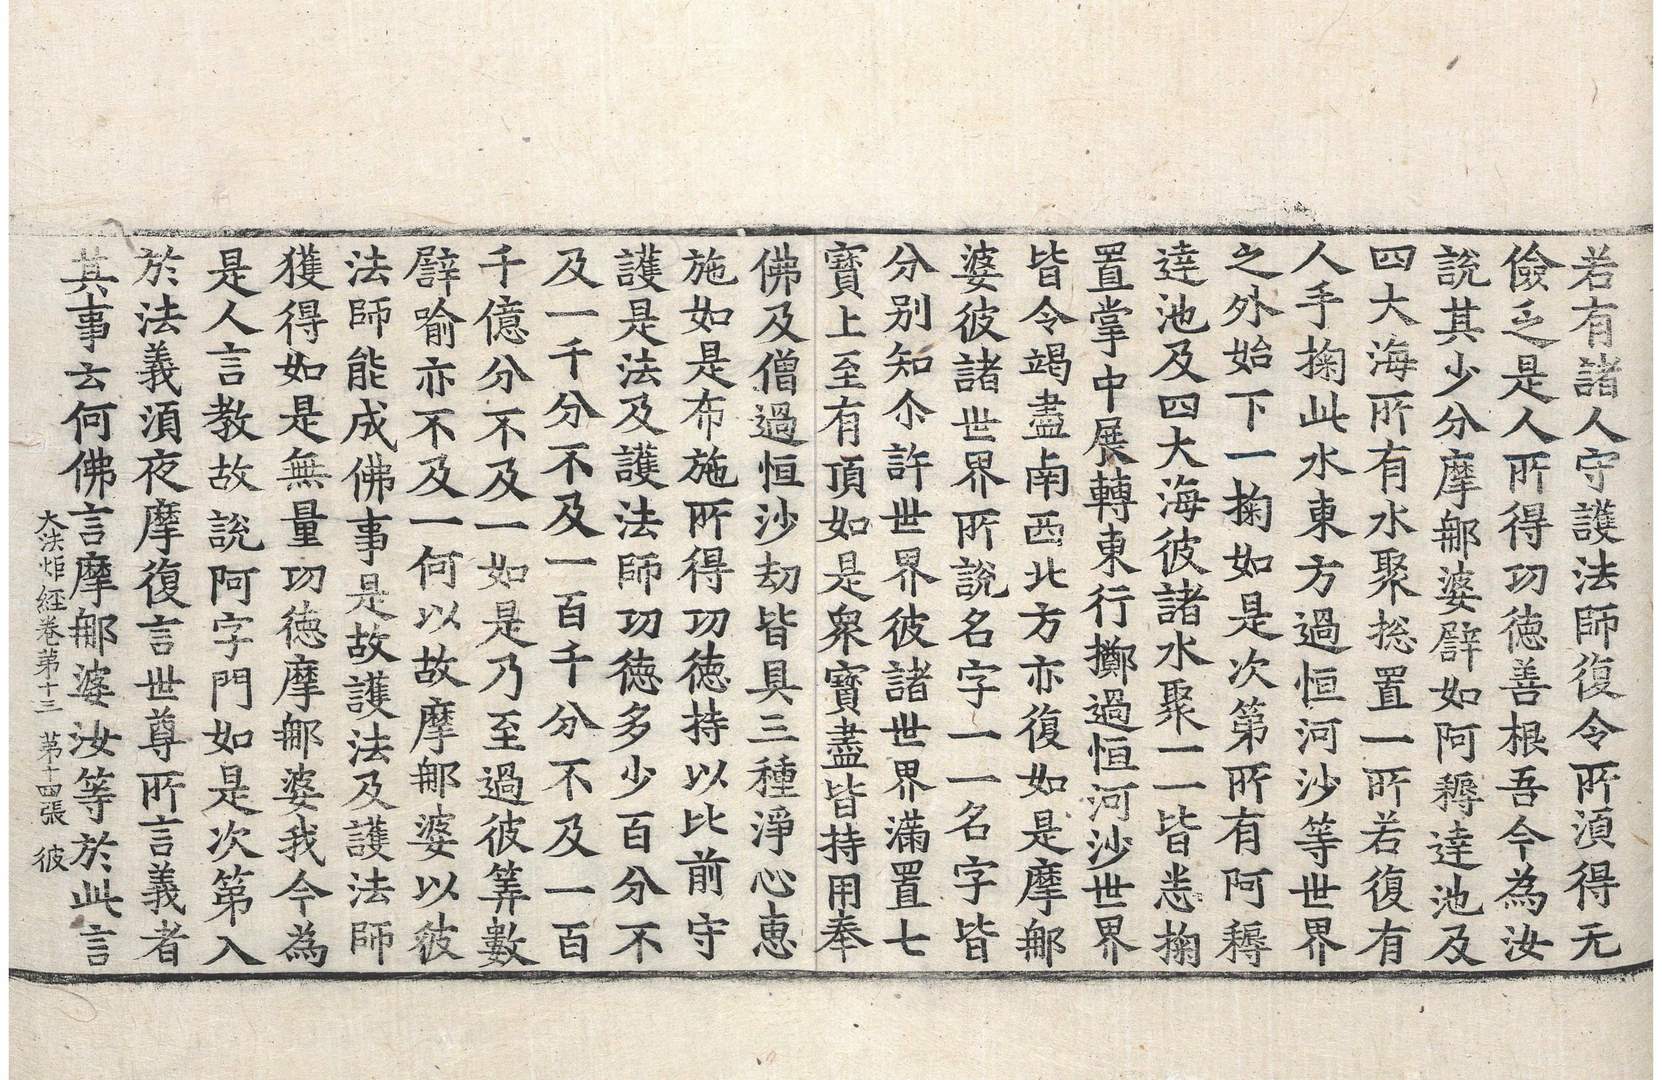 若有諸人守護法師復令所湏得无
儉乏是人所得功德善根吾今為汝
說其少分摩郍婆譬如阿耨達池及
四大海所有水聚揔置一所若復有
人手掬此水東方過恒河沙等世界
之外始下一掬如是次第所有阿耨
達池及四大海彼諸水聚一一皆悉掬
置掌中展轉東行擲過恒河沙世界
皆令竭盡南西北方亦復如是摩郍
婆彼諸世界所說名字一一名字皆
分別知尒許世界彼諸世界滿置七
寶上至有頂如是衆寶盡皆持用奉
佛及僧過恒沙劫皆具三種淨心惠
施如是布施所得功德持以比前守
護是法及護法師功德多少百分不
及一千分不及一百千分不及一百
千億分不及一如是乃至過彼筭數
譬喻亦不及一何以故摩郍婆以彼
法師能成佛事是故護法及護法師
獲得如是無量功德摩郍婆我今為
是人言教故說阿字門如是次第入
於法義須夜摩復言世尊所言義者
其事云何佛言摩郍婆汝等於此言
大法炬經卷第十三 第十四張 彼